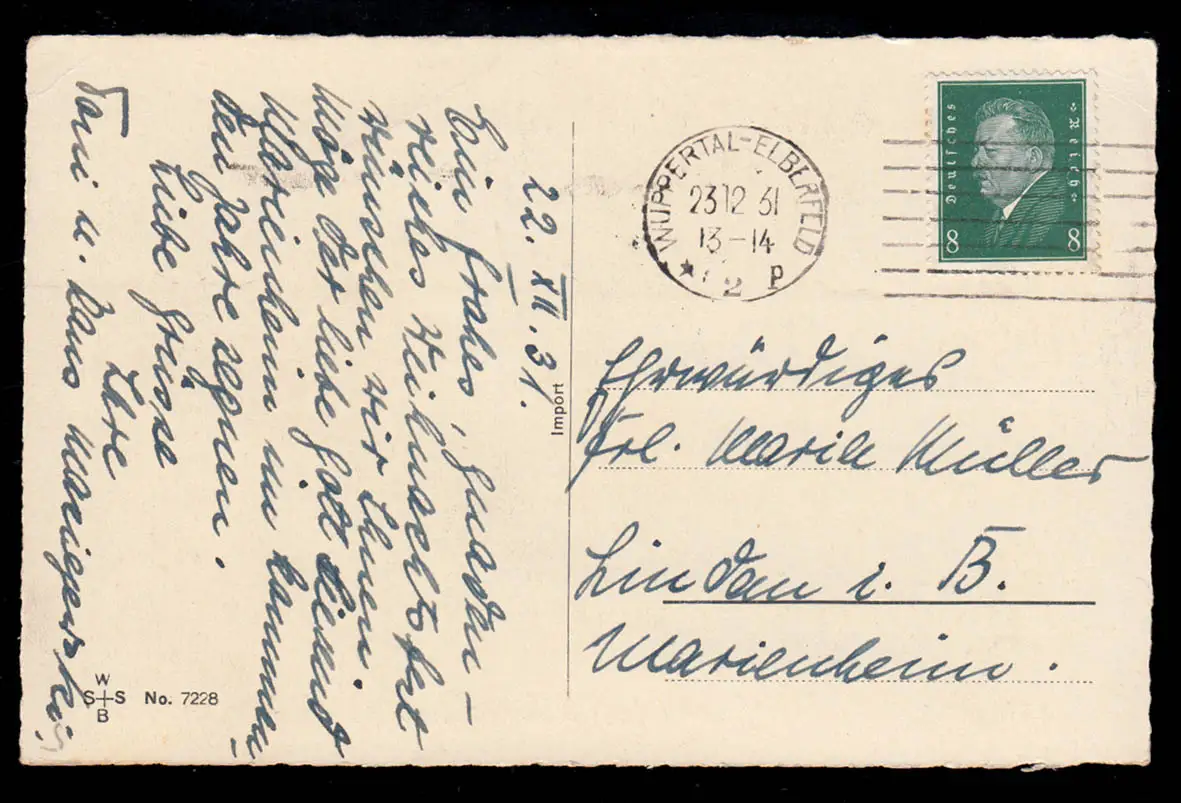 22. XII. 31.
Ein frohes, gnaden-
reiches Weihnachtsfest
wünschen wir Ihnen.
Möge der liebe Gott Sie und
Marienheim im kommen-
den Jahre segnen.
Liebe Grüsse
Ihre
Toni u. Hans
Import
W
S+S
B
No. 7228
WUPPERTAL-ELBERFELD
23 12 31
13-14
* 2 p
Deutsches Reich
8 8
Ehrwürdiges
Frl. Maria Müller
Lindau i. B.
Marienheim.